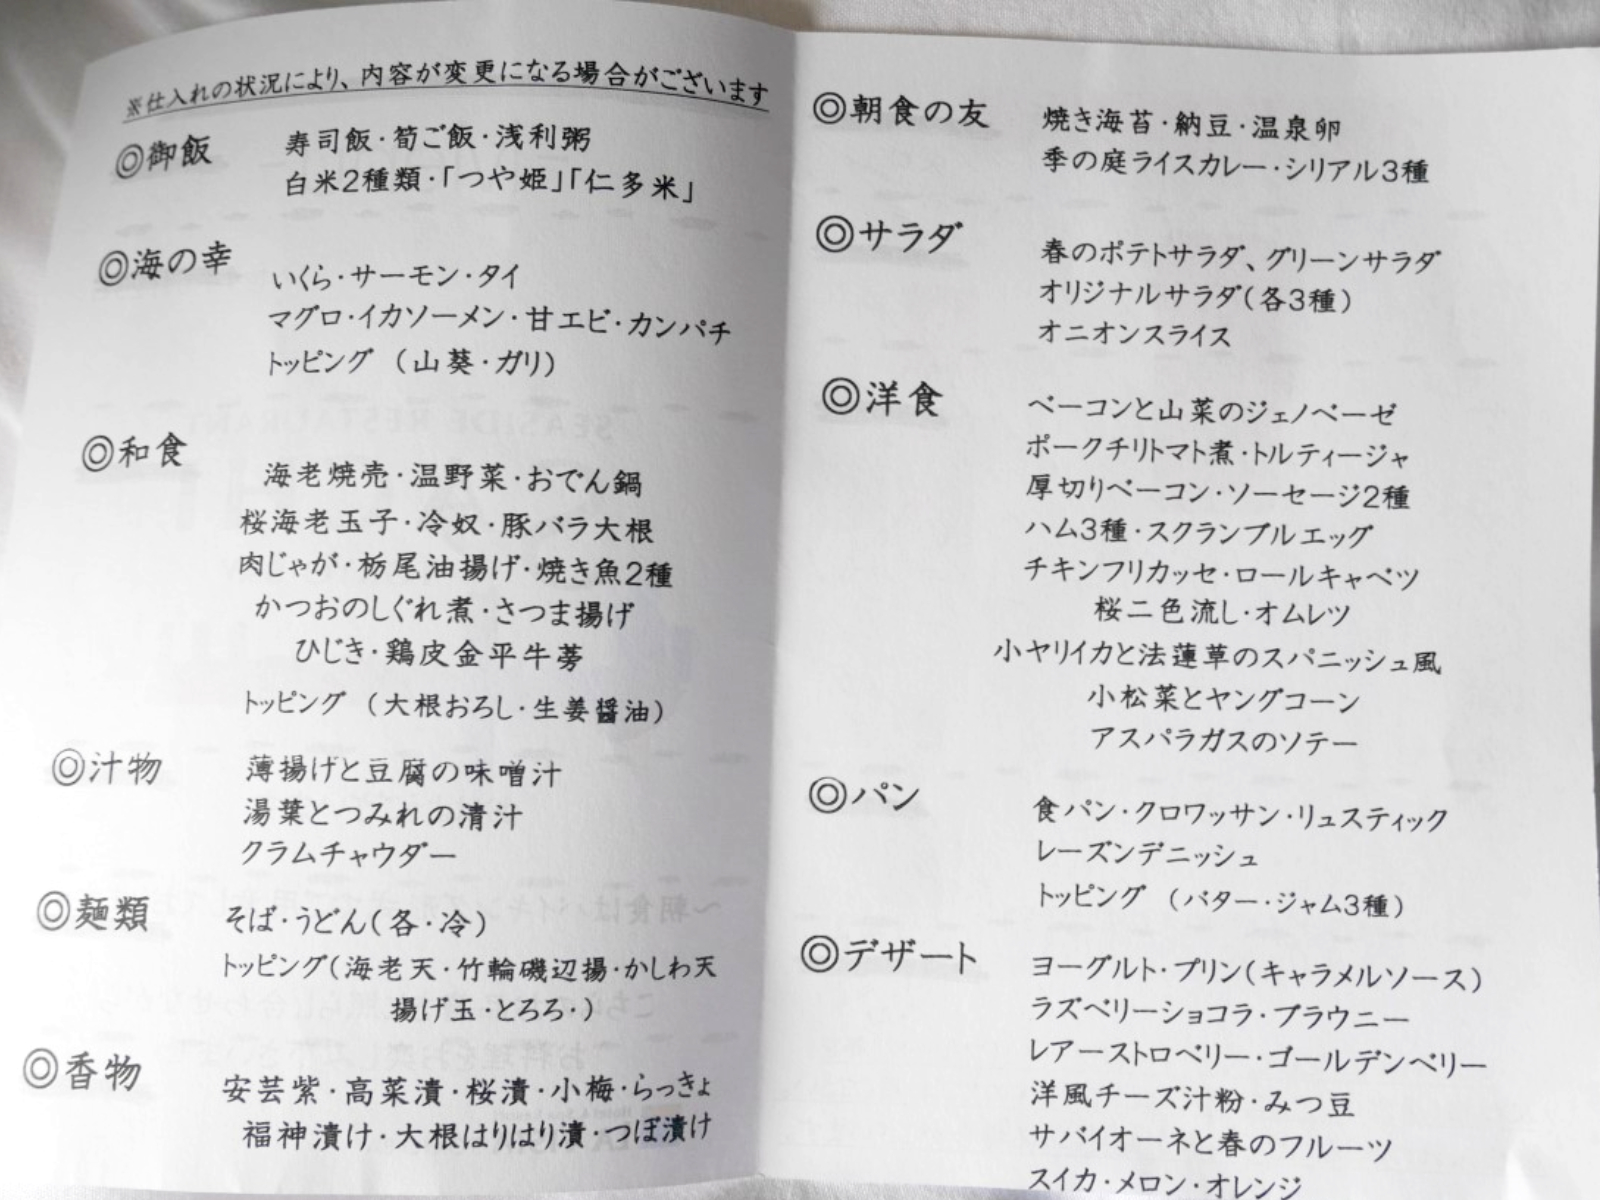 ※仕入れの状況により、内容が変更になる場合がございます
◎御飯
寿司飯・筍ご飯・浅利粥
白米2種類・「つや姫」「仁多米」
◎海の幸
いくら・サーモン・タイ
マグロ・イカソーメン・甘エビ・カンパチ
トッピング （山葵・ガリ）
◎和食
海老焼売・温野菜・おでん鍋
桜海老玉子・冷奴・豚バラ大根
肉じゃが・栃尾油揚げ・焼き魚2種
かつおのしぐれ煮・さつま揚げ
ひじき・鶏皮金平牛蒡
トッピング （大根おろし・生姜醤油）
◎汁物
薄揚げと豆腐の味噌汁
湯葉とつみれの清汁
クラムチャウダー
◎麺類
そば・うどん（各・冷）
トッピング（海老天・竹輪磯辺揚・かしわ天
揚げ玉・とろろ・）
◎香物
安芸紫・高菜漬・桜漬・小梅・らっきょ
福神漬け・大根はりはり漬・つぼ漬け
◎朝食の友
焼き海苔・納豆・温泉卵
季の庭ライスカレー・シリアル3種
◎サラダ
春のポテトサラダ、グリーンサラダ
オリジナルサラダ（各3種）
オニオンスライス
◎洋食
ベーコンと山菜のジェノベーゼ
ポークチリトマト煮・トルティージャ
厚切りベーコン・ソーセージ2種
ハム3種・スクランブルエッグ
チキンフリカッセ・ロールキャベツ
桜二色流し・オムレツ
小ヤリイカと法蓮草のスパニッシュ風
小松菜とヤングコーン
アスパラガスのソテー
◎パン
食パン・クロワッサン・リュスティック
レーズンデニッシュ
トッピング （バター・ジャム3種）
◎デザート
ヨーグルト・プリン（キャラメルソース）
ラズベリーショコラ・ブラウニー
レアーストロベリー・ゴールデンベリー
洋風チーズ汁粉・みつ豆
サバイオーネと春のフルーツ
スイカ・メロン・オレンジ